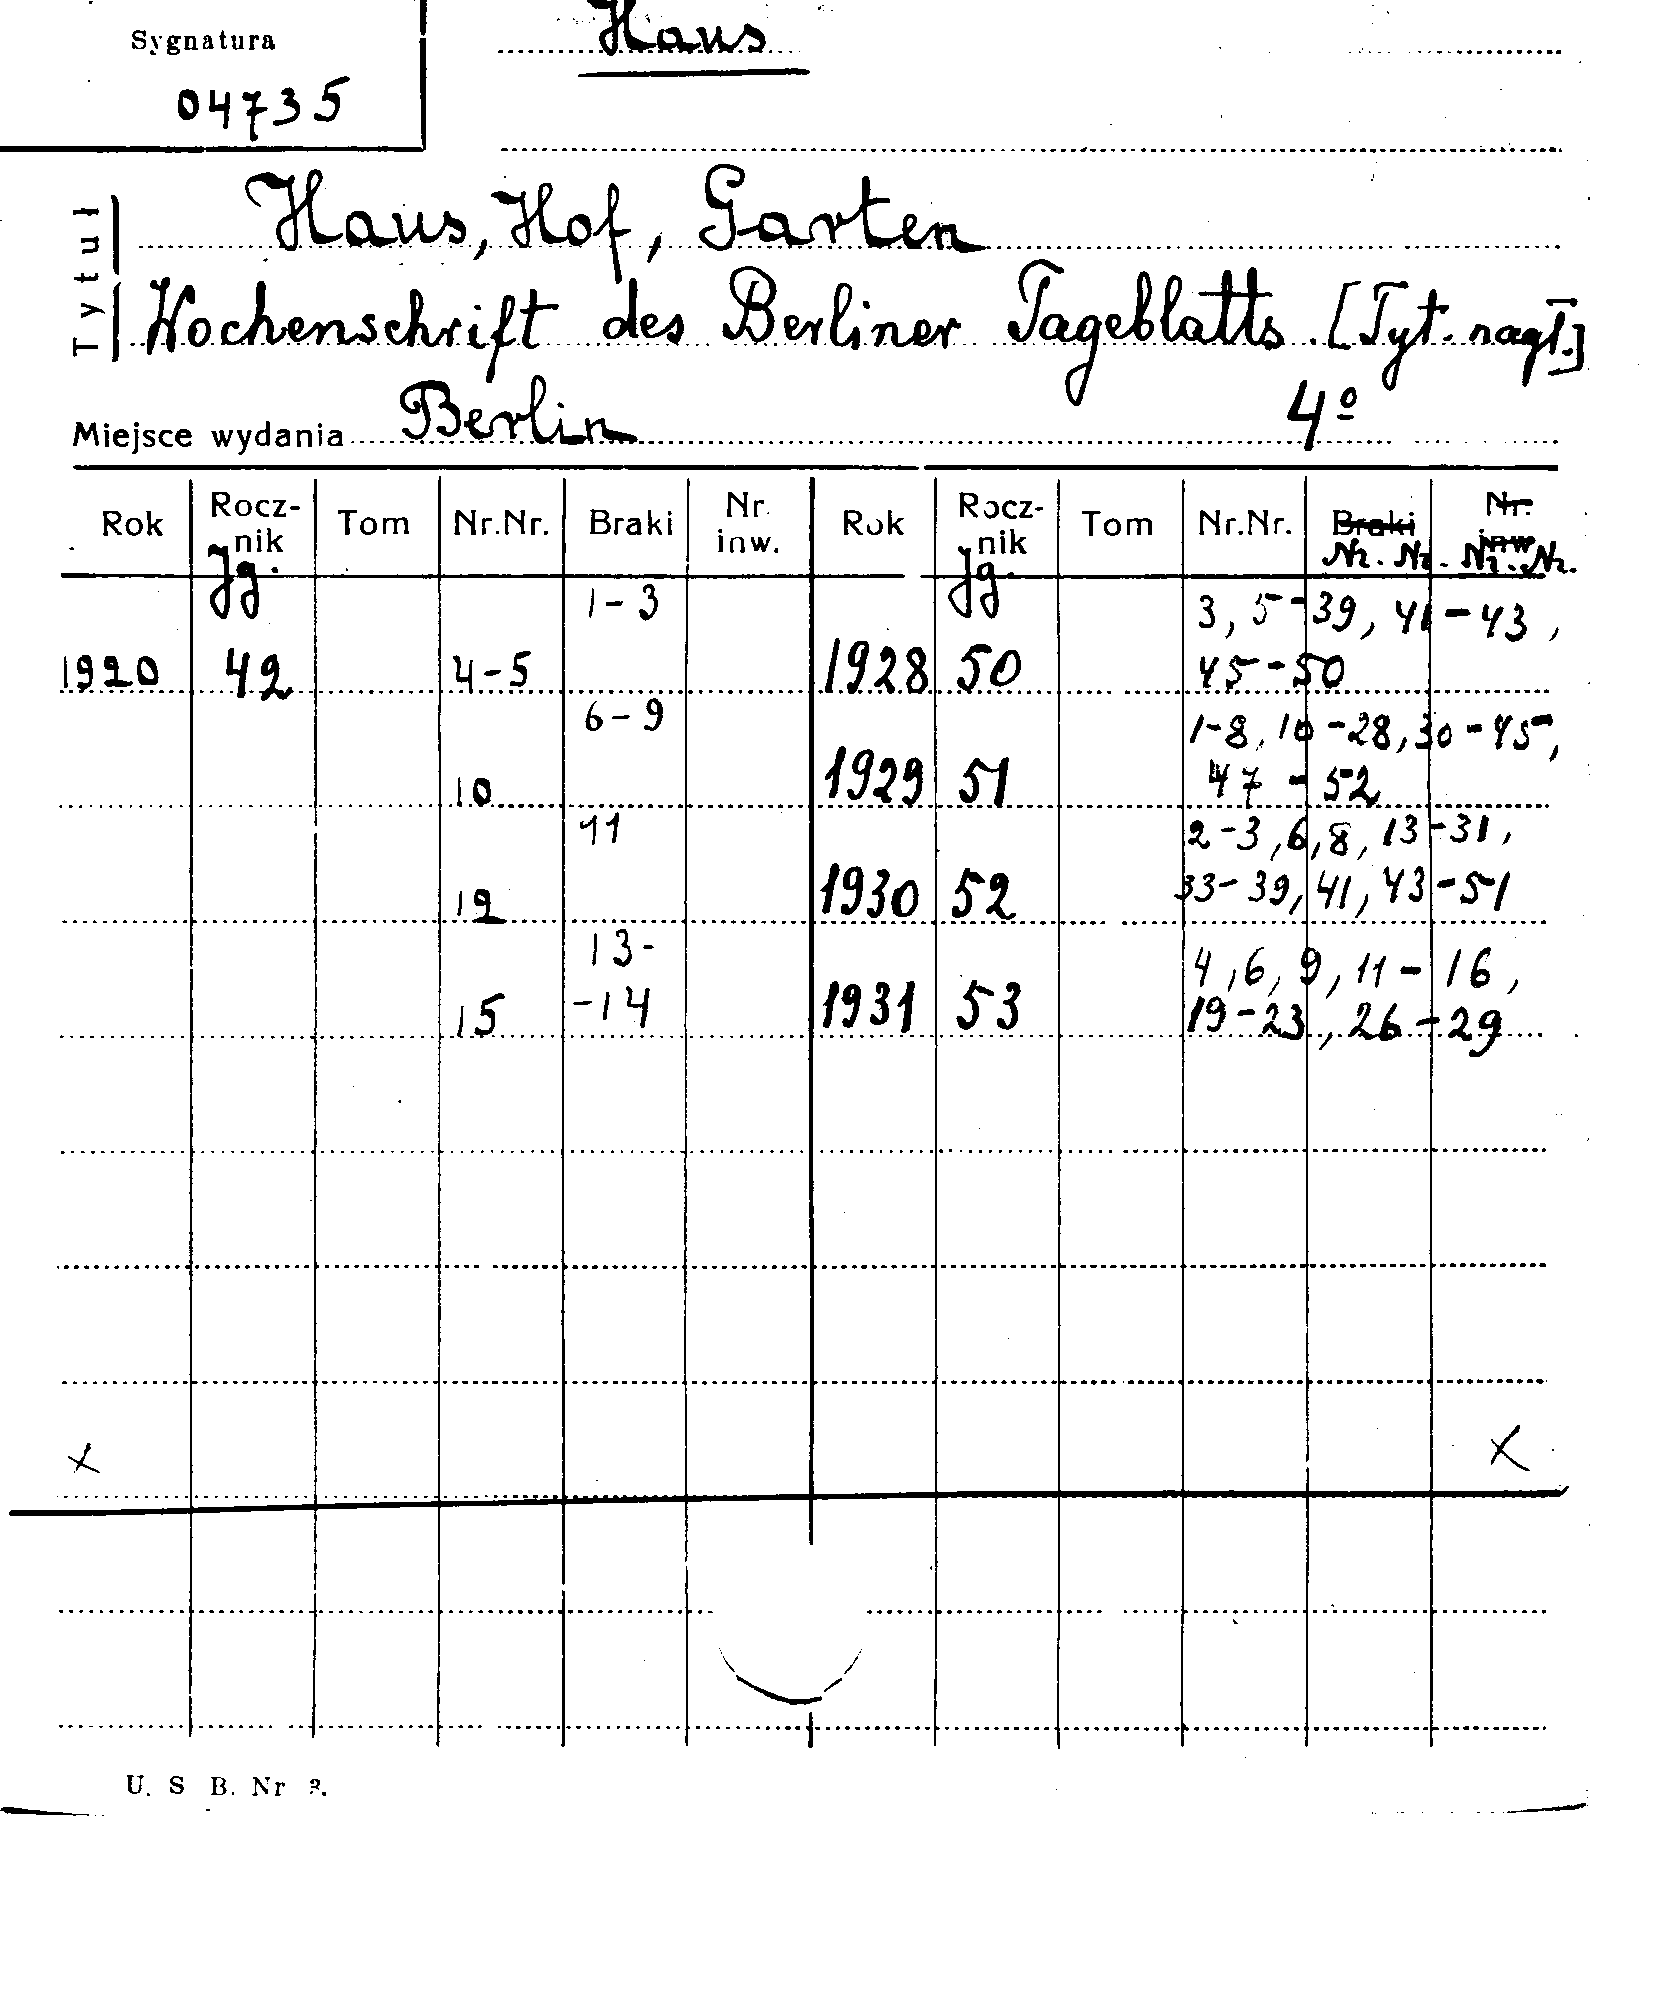 Sygnatura
Haus
04735
Tytuł
Haus, Hof, Garten
Wochenschrift des Berliner Tageblatts. [Tyt. nagł.]
Miejsce wydania Berlin 4º
Rok Rocz- Tom Nr.Nr. Braki Nr. Rok Rocz- Tom Nr.Nr. Braki Nr.
nik inw. nik inw.
Jg. Jg. Nr. Nr. Nr. Nr.
1-3 3, 5-39, 41-43,
1920 42 4-5 1928 50 45-50
6-9 1-8, 10-28, 30-45,
10 1929 51 47-52
11 2-3, 6, 8, 13-31,
12 1930 52 33-39, 41, 43-51
13- 4, 6, 9, 11-16,
15 -14 1931 53 19-23, 26-29
x x
U. S B. Nr